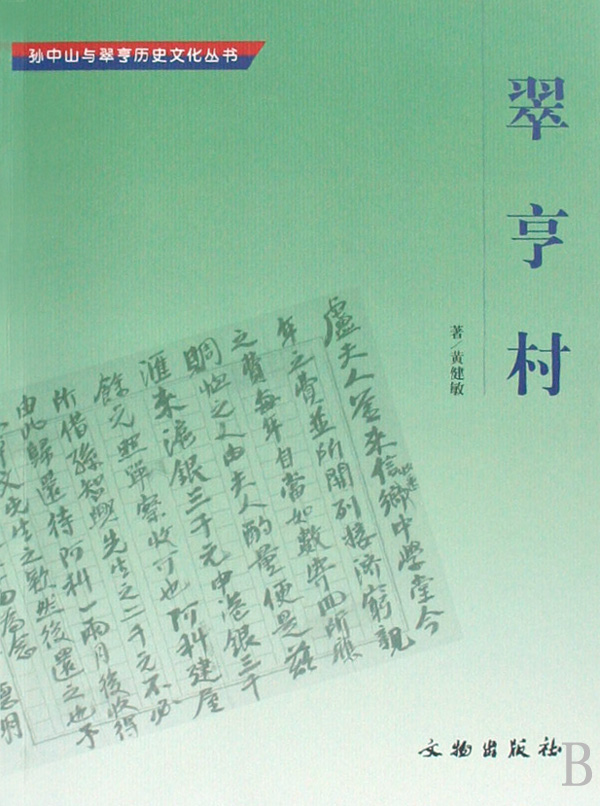 孙中山与翠亨历史文化丛书
翠亨村
著／黄健敏
盧夫人鉴来信收悉鄉中學堂今
年之費并所開列接济窮親
之費每年自當如數寄回所應
賙恤之人由夫人酌量便是茲
滙来滬銀三千元申港銀三千
餘元照單察收可也阿科建屋
所借孫智興先生之二千元不必
由此歸還待阿科一兩月後收得
先生之欵然後還之也予
文物出版社
B